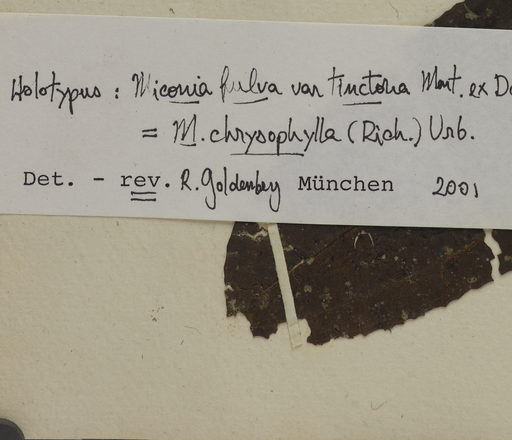 Holotypus : Miconia fulva var tinctoria Mart. ex
= M. chrysophylla (Rich.) Urb.
Det. - rev. R. Goldenberg München 2001